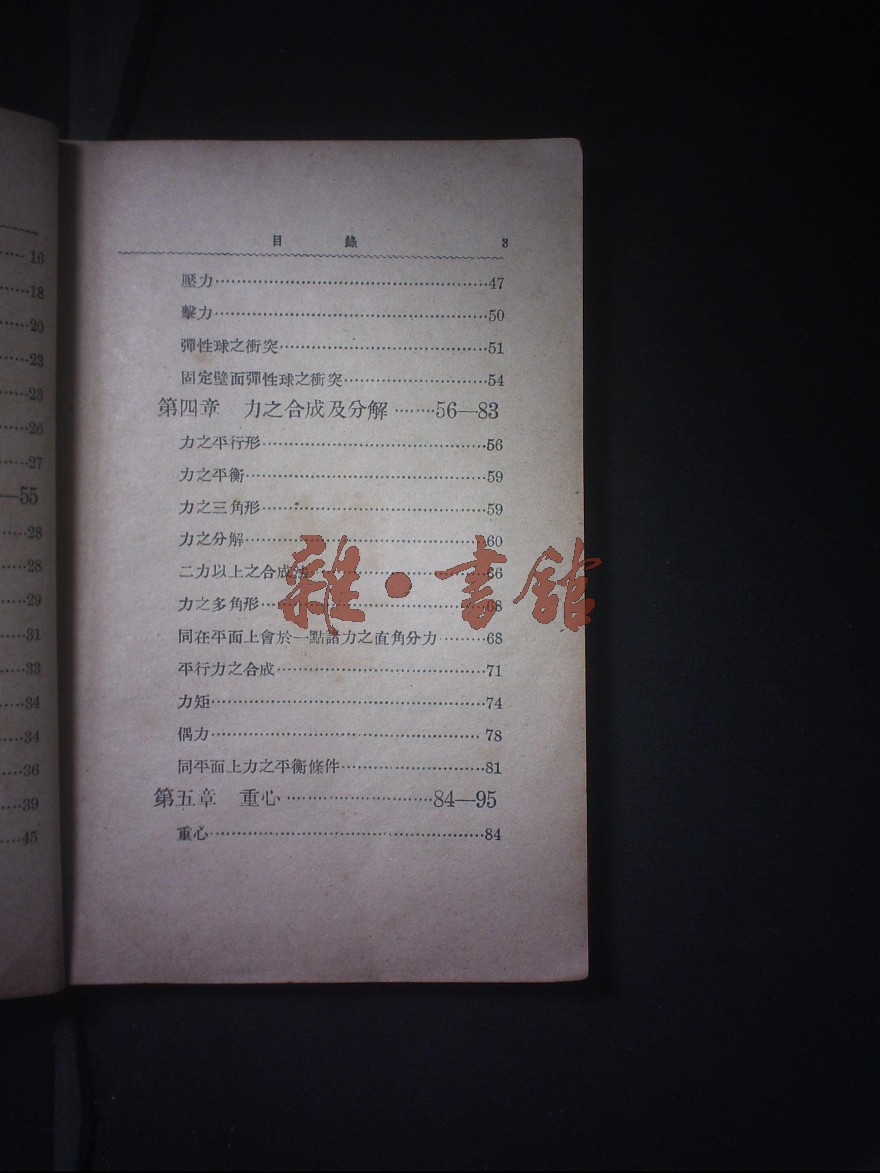 16
18
20
23
23
26
27
—55
28
28
29
31
33
34
34
36
39
45
目 錄 3
壓力……47
擊力……50
彈性球之衝突……51
固定壁面彈性球之衝突……54
第四章 力之合成及分解……56—83
力之平行形……56
力之平衡……59
力之三角形……59
力之分解……60
二力以上之合成法……66
力之多角形……68
同在平面上會於一點諸力之直角分力……68
平行力之合成……71
力矩……74
偶力……78
同平面上力之平衡條件……81
第五章 重心……84—95
重心……84
雜·書館